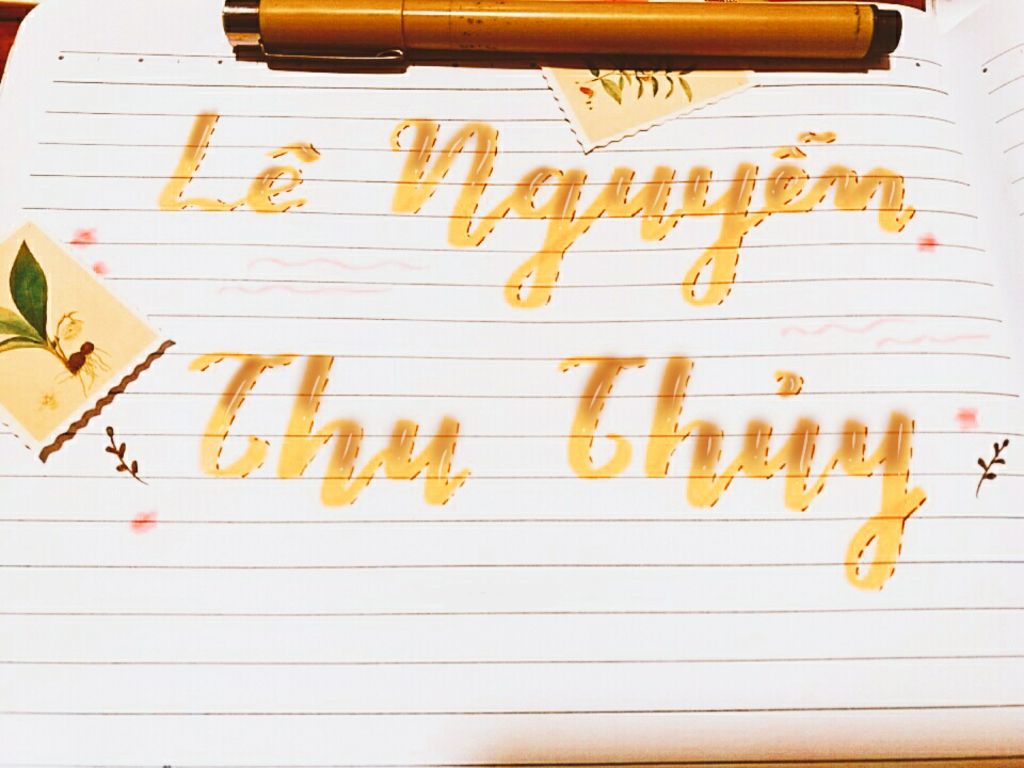 Lê Nguyễn
Thu Thủy